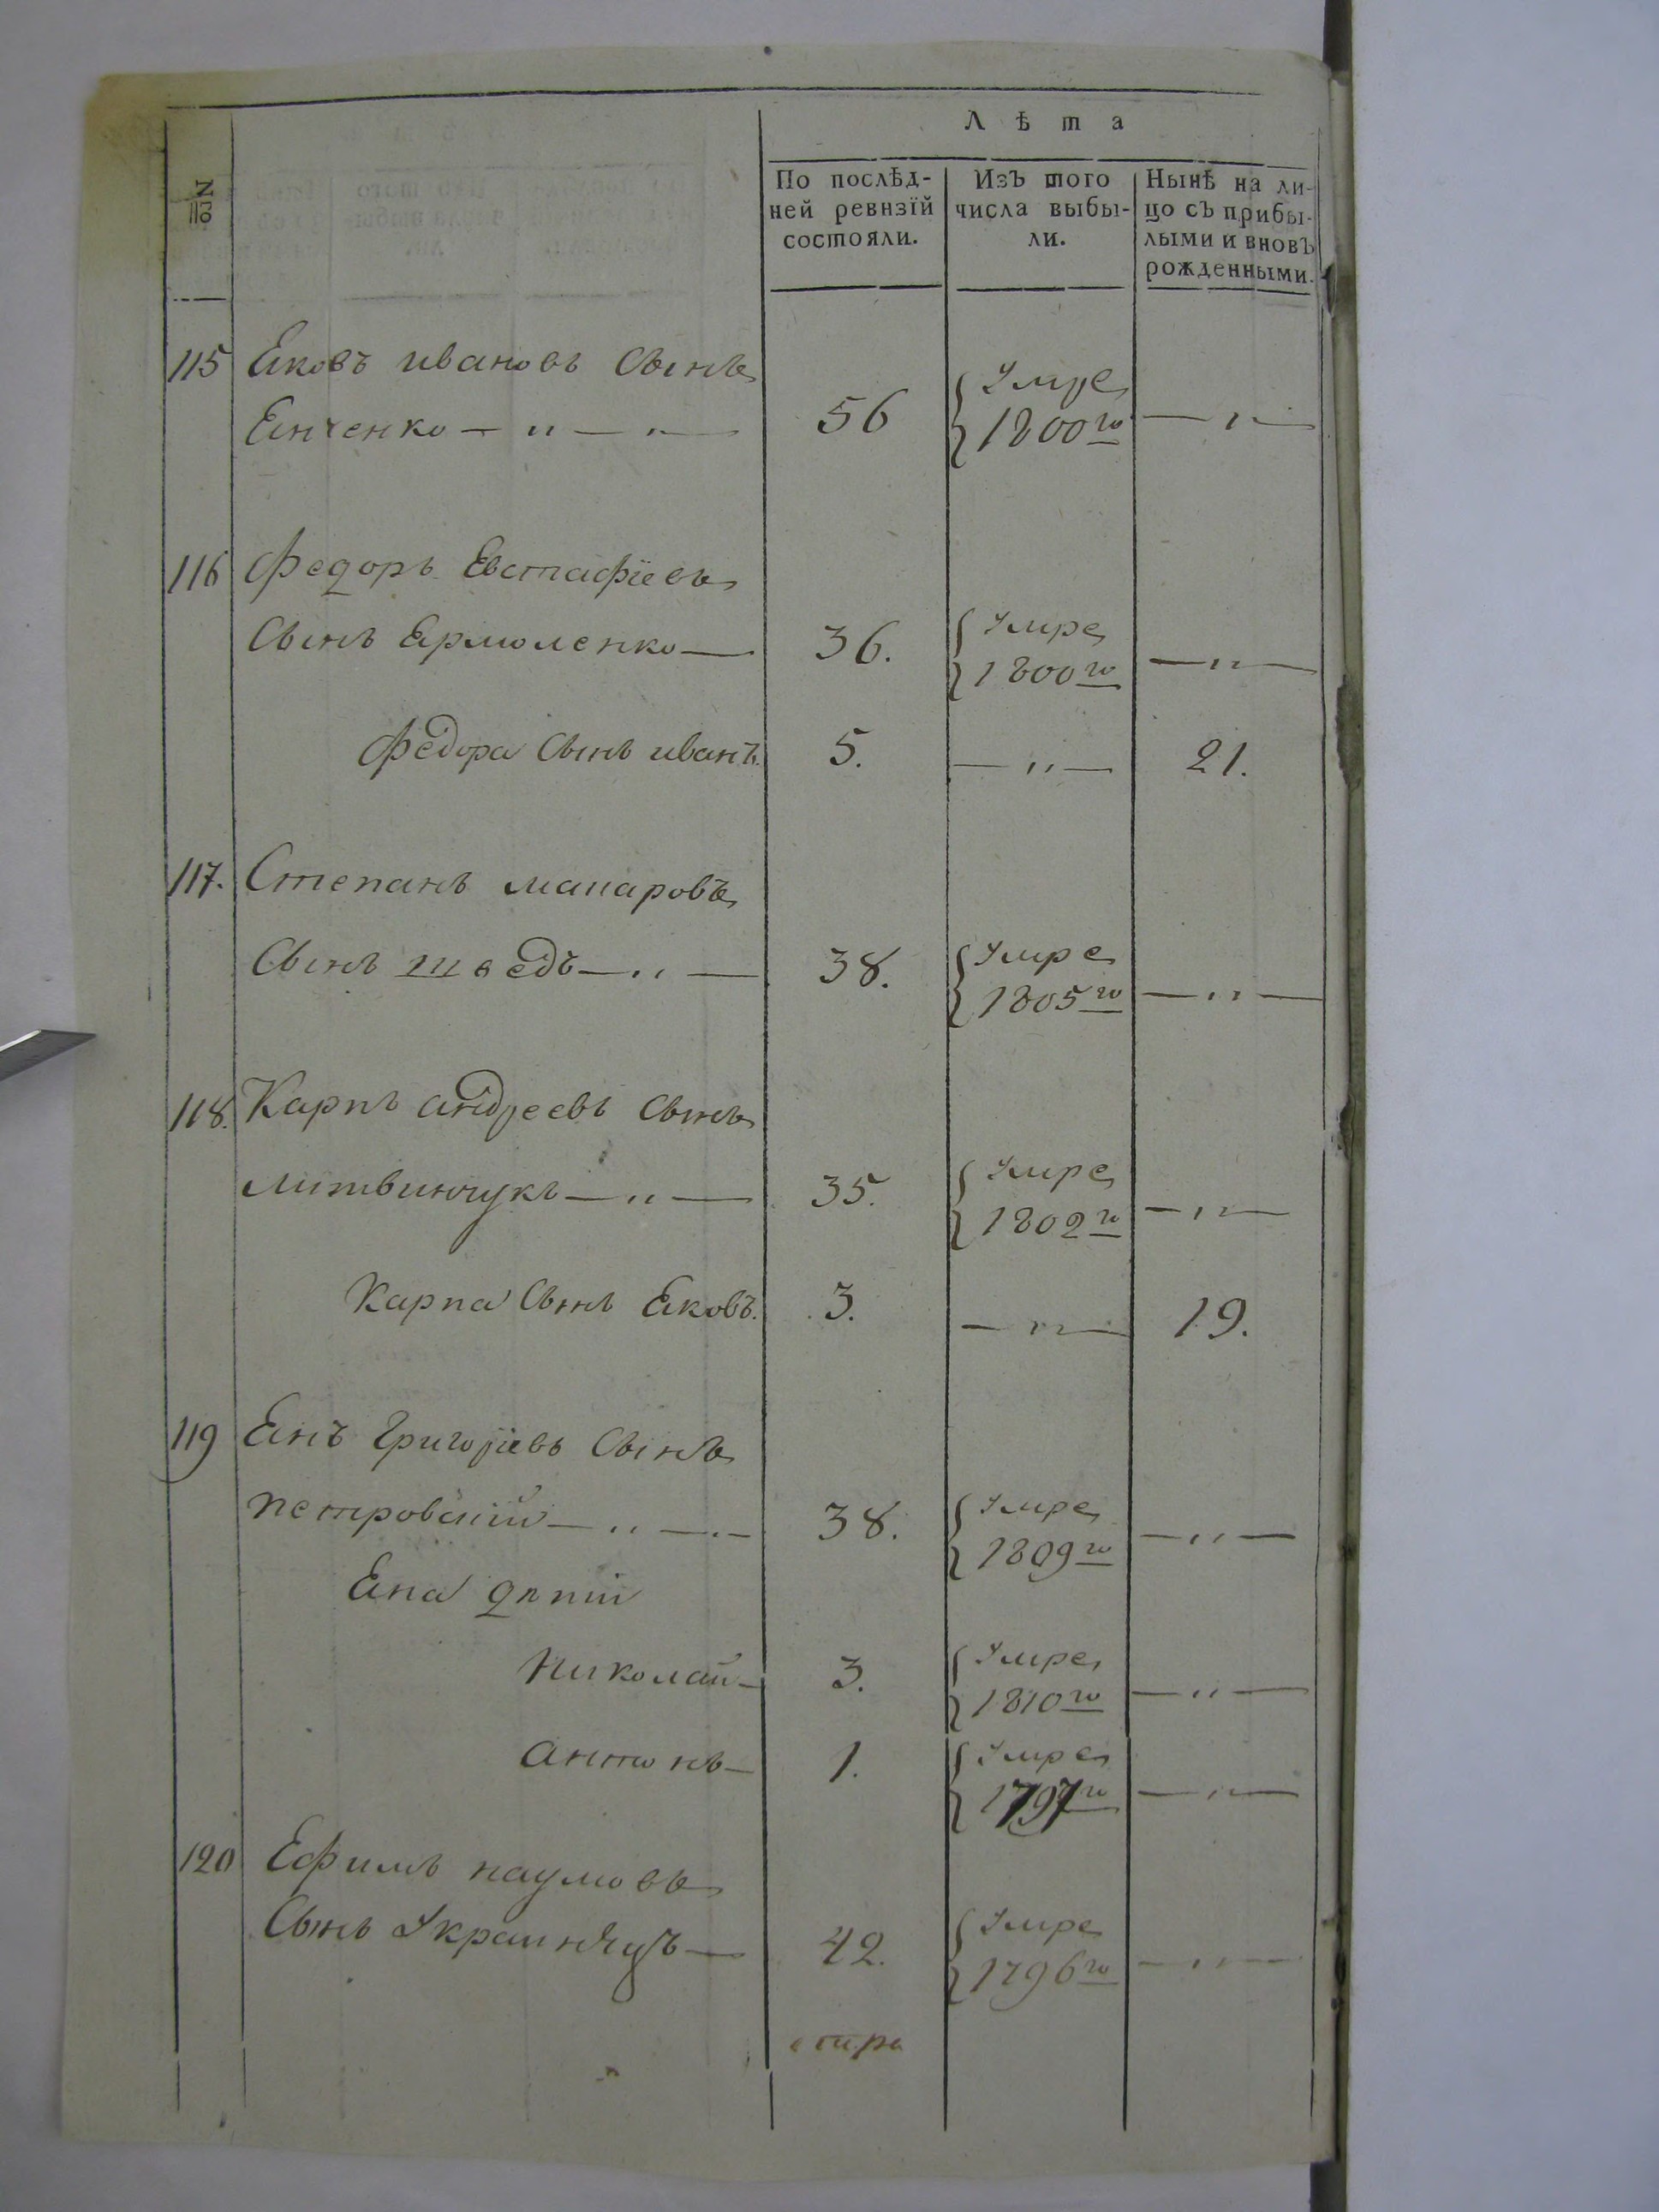 №
Лѣта
По послѣд-
ней ревизїй
состояли.
Изъ того
числа выбы-
ли.
Нынѣ на ли-
цо съ прибы-
лыми и вновь
рожденными.
115 Яковъ ивановъ Сынъ
Янченко — „ — „ — 56 Умре 1800го — „ —
116 Федоръ Евстафїевъ
Сынъ Ермоленко — 36. Умре 1800го — „ —
Федора Сынъ иванъ. 5. — „ — 21.
117. Степанъ макаровъ
Сынъ шведъ — „ — 38. Умре 1805го — „ —
118. Карпъ андреевъ Сынъ
литвинчукъ — „ — 35. Умре 1802го — „ —
Карпа Сынъ Яковъ. 3. — „ — 19.
119 Янъ Григорїевъ Сынъ
петровскїй — „ — „ — 38. Умре 1809го — „ —
Яна дѣтїи
Николай — 3. Умре 1810го — „ —
антонъ — 1. Умре 1797го — „ —
120 Ефимъ наумовъ
Сынъ Украинецъ — 42. Умре 1796го — „ —